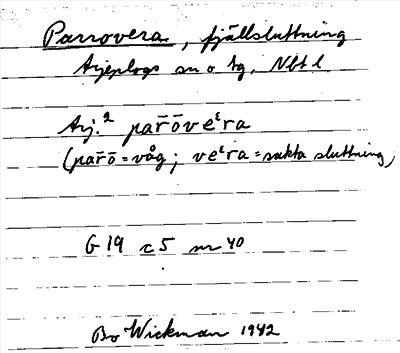 Parrovera, fjällsluttning
Arjeplogs sn o tg, Nbt l.
Arj.² par̄ōveᵋra
(par̄ō = våg; veᵋra = sakta sluttning)
G 19 c 5 nr 40
Bo Wickman 1942